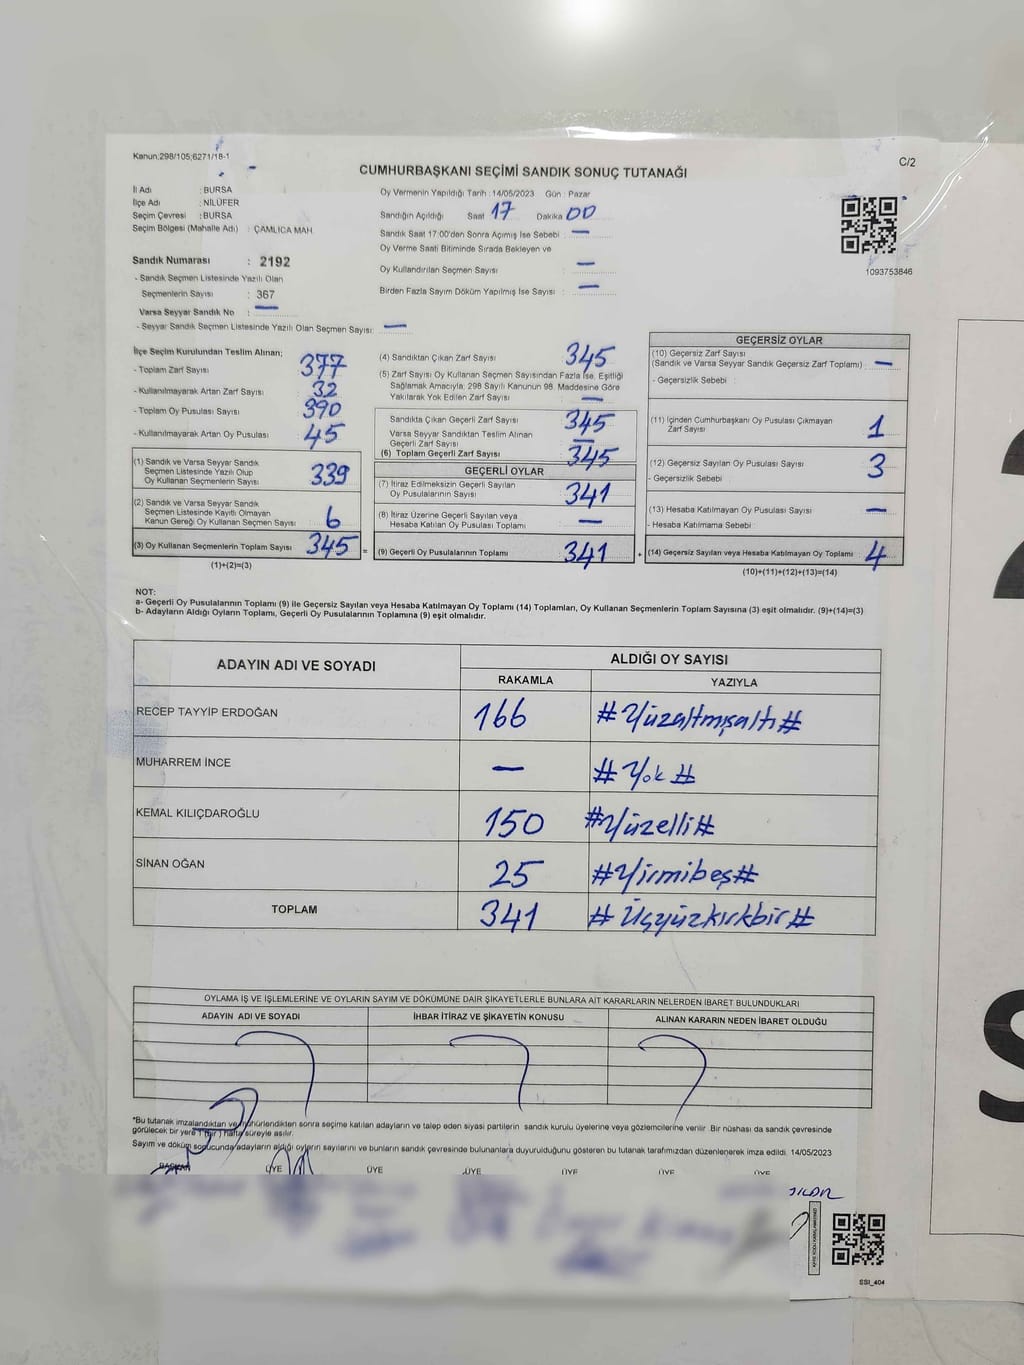 Kanun:298/105;6271/18-1
C/2
CUMHURBAŞKANI SEÇİMİ SANDIK SONUÇ TUTANAĞI
İl Adı : BURSA
İlçe Adı : NİLÜFER
Seçim Çevresi : BURSA
Seçim Bölgesi (Mahalle Adı) : ÇAMLICA MAH.
Oy Vermenin Yapıldığı Tarih : 14/05/2023 Gün : Pazar
Sandığın Açıldığı Saat 17 Dakika 00
Sandık Saat 17:00'den Sonra Açımış İse Sebebi : —
Oy Verme Saati Bitiminde Sırada Bekleyen ve
Oy Kullandırılan Seçmen Sayısı : —
Birden Fazla Sayım Döküm Yapılmış İse Sayısı : —
1093753846
Sandık Numarası : 2192
- Sandık Seçmen Listesinde Yazılı Olan
Seçmenlerin Sayısı : 367
Varsa Seyyar Sandık No : —
- Seyyar Sandık Seçmen Listesinde Yazılı Olan Seçmen Sayısı: —
İlçe Seçim Kurulundan Teslim Alınan;
- Toplam Zarf Sayısı : 377
- Kullanılmayarak Artan Zarf Sayısı : 32
- Toplam Oy Pusulası Sayısı : 390
- Kullanılmayarak Artan Oy Pusulası : 45
(1) Sandık ve Varsa Seyyar Sandık
Seçmen Listesinde Yazılı Olup
Oy Kullanan Seçmenlerin Sayısı : 339
(2) Sandık ve Varsa Seyyar Sandık
Seçmen Listesinde Kayıtlı Olmayan
Kanun Gereği Oy Kullanan Seçmen Sayısı : 6
(3) Oy Kullanan Seçmenlerin Toplam Sayısı : 345 =
(1)+(2)=(3)
(4) Sandıktan Çıkan Zarf Sayısı : 345
(5) Zarf Sayısı Oy Kullanan Seçmen Sayısından Fazla İse, Eşitliği
Sağlamak Amacıyla, 298 Sayılı Kanunun 98. Maddesine Göre
Yakılarak Yok Edilen Zarf Sayısı : —
Sandıkta Çıkan Geçerli Zarf Sayısı : 345
Varsa Seyyar Sandıktan Teslim Alınan
Geçerli Zarf Sayısı : —
(6) Toplam Geçerli Zarf Sayısı : 345
GEÇERLİ OYLAR
(7) İtiraz Edilmeksizin Geçerli Sayılan
Oy Pusulalarının Sayısı : 341
(8) İtiraz Üzerine Geçerli Sayılan veya
Hesaba Katılan Oy Pusulası Toplamı : —
(9) Geçerli Oy Pusulalarının Toplamı : 341 +
GEÇERSİZ OYLAR
(10) Geçersiz Zarf Sayısı
(Sandık ve Varsa Seyyar Sandık Geçersiz Zarf Toplamı) : —
- Geçersizlik Sebebi :
(11) İçinden Cumhurbaşkanı Oy Pusulası Çıkmayan
Zarf Sayısı : 1
(12) Geçersiz Sayılan Oy Pusulası Sayısı : 3
- Geçersizlik Sebebi :
(13) Hesaba Katılmayan Oy Pusulası Sayısı : —
- Hesaba Katılmama Sebebi :
(14) Geçersiz Sayılan veya Hesaba Katılmayan Oy Toplamı : 4
(10)+(11)+(12)+(13)=(14)
NOT:
a- Geçerli Oy Pusulalarının Toplamı (9) ile Geçersiz Sayılan veya Hesaba Katılmayan Oy Toplamı (14) Toplamları, Oy Kullanan Seçmenlerin Toplam Sayısına (3) eşit olmalıdır. (9)+(14)=(3)
b- Adayların Aldığı Oyların Toplamı, Geçerli Oy Pusulalarının Toplamına (9) eşit olmalıdır.
ADAYIN ADI VE SOYADI ALDIĞI OY SAYISI
RAKAMLA YAZIYLA
RECEP TAYYİP ERDOĞAN 166 #Yüzaltmışaltı#
MUHARREM İNCE — #Yok#
KEMAL KILIÇDAROĞLU 150 #Yüzelli#
SİNAN OĞAN 25 #Yirmibeş#
TOPLAM 341 #Üçyüzkırkbir#
OYLAMA İŞ VE İŞLEMLERİNE VE OYLARIN SAYIM VE DÖKÜMÜNE DAİR ŞİKAYETLERLE BUNLARA AİT KARARLARIN NELERDEN İBARET BULUNDUKLARI
ADAYIN ADI VE SOYADI İHBAR İTİRAZ VE ŞİKAYETİN KONUSU ALINAN KARARIN NEDEN İBARET OLDUĞU
*Bu tutanak imzalandıktan ve mühürlendikten sonra seçime katılan adayların ve talep eden siyasi partilerin sandık kurulu üyelerine veya gözlemcilerine verilir. Bir nüshası da sandık çevresinde
görülecek bir yere 1 (bir) hafta süreyle asılır.
Sayım ve döküm sonucunda adayların aldığı oyların sayılarını ve bunların sandık çevresinde bulunanlara duyurulduğunu gösteren bu tutanak tarafımızdan düzenlenerek imza edildi. 14/05/2023
BAŞKAN ÜYE ÜYE ÜYE ÜYE ÜYE ÜYE
SSI_404